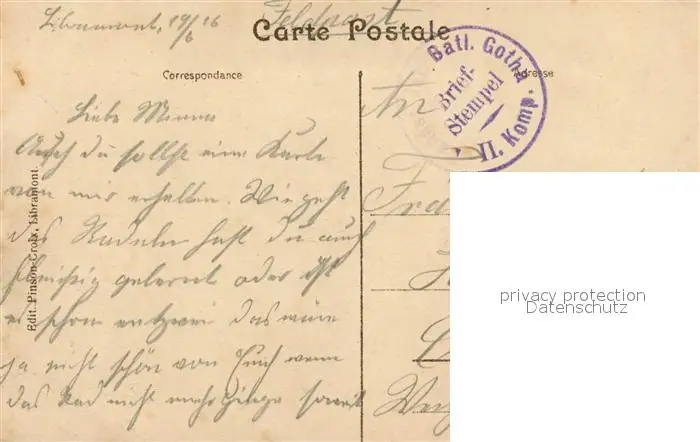 Libramont, 19/6 16
Feldpost
Carte Postale
Correspondance
Adresse
Batl. Gotha
Brief-
Stempel
II. Komp.
An
Liebe Minna
Auch du sollst eine Karte
von mir erhalten. Wie geht
das Radeln hast du auch
fleichsig gelernt oder ist
es schon entzwei das wäre
ja nicht schön von Euch wenn
das Rad nicht mehr ginge soweit
Edit. Pinson-Croix, Libramont.
privacy protection
Datenschutz